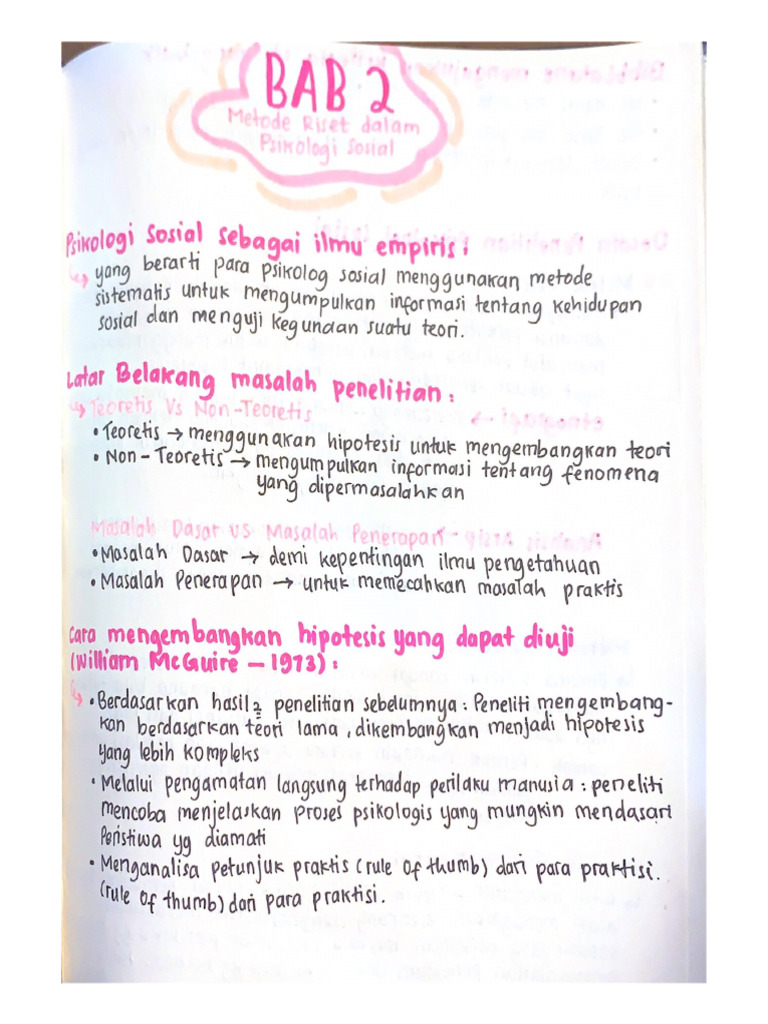 BAB 2
Metode Riset dalam
Psikologi Sosial
Psikologi Sosial sebagai ilmu empiris :
↳ yang berarti para psikolog sosial menggunakan metode
sistematis untuk mengumpulkan informasi tentang kehidupan
sosial dan menguji kegunaan suatu teori.
Latar Belakang masalah penelitian :
↳ Teoretis Vs Non-Teoretis
• Teoretis → menggunakan hipotesis untuk mengembangkan teori
• Non-Teoretis → mengumpulkan informasi tentang fenomena
yang dipermasalahkan
Masalah Dasar vs Masalah Penerapan
• Masalah Dasar → demi kepentingan ilmu pengetahuan
• Masalah Penerapan → untuk memecahkan masalah praktis
Cara mengembangkan hipotesis yang dapat diuji
(William McGuire – 1973) :
↳ • Berdasarkan hasil2 penelitian sebelumnya : Peneliti mengembang-
kan berdasarkan teori lama, dikembangkan menjadi hipotesis
yang lebih kompleks
• Melalui pengamatan langsung terhadap perilaku manusia : peneliti
mencoba menjelaskan proses psikologis yang mungkin mendasari
Peristiwa yg diamati
• Menganalisa petunjuk praktis (rule of thumb) dari para praktisi.
(rule of thumb) dari para praktisi.